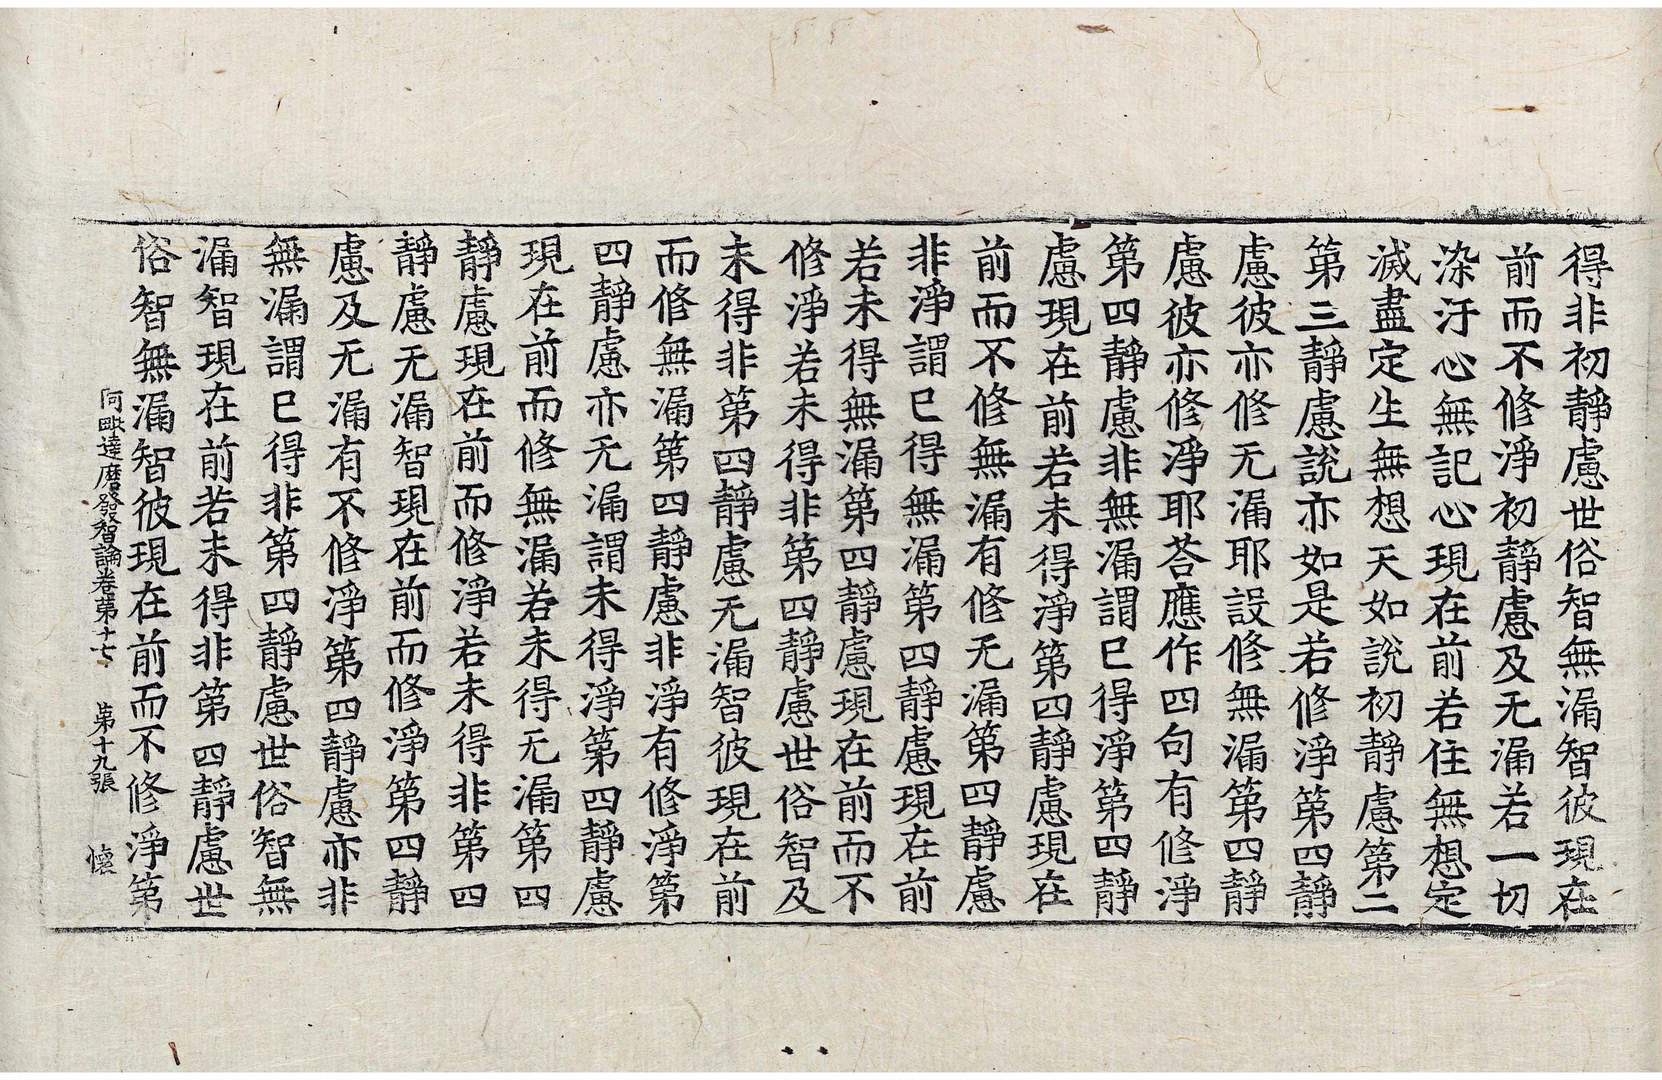 得非初靜慮世俗智無漏智彼現在
前而不修淨初靜慮及无漏若一切
染汙心無記心現在前若住無想定
滅盡定生無想天如說初靜慮第二
第三靜慮說亦如是若修淨第四靜
慮彼亦修无漏耶設修無漏第四靜
慮彼亦修淨耶荅應作四句有修淨
第四靜慮非無漏謂已得淨第四靜
慮現在前若未得淨第四靜慮現在
前而不修無漏有修无漏第四靜慮
非淨謂已得無漏第四靜慮現在前
若未得無漏第四靜慮現在前而不
修淨若未得非第四靜慮世俗智及
未得非第四靜慮无漏智彼現在前
而修無漏第四靜慮非淨有修淨第
四靜慮亦无漏謂未得淨第四靜慮
現在前而修無漏若未得无漏第四
靜慮現在前而修淨若未得非第四
靜慮无漏智現在前而修淨第四靜
慮及无漏有不修淨第四靜慮亦非
無漏謂已得非第四靜慮世俗智無
漏智現在前若未得非第四靜慮世
俗智無漏智彼現在前而不修淨第
阿毗達磨發智論卷第十七 第十九張 懷